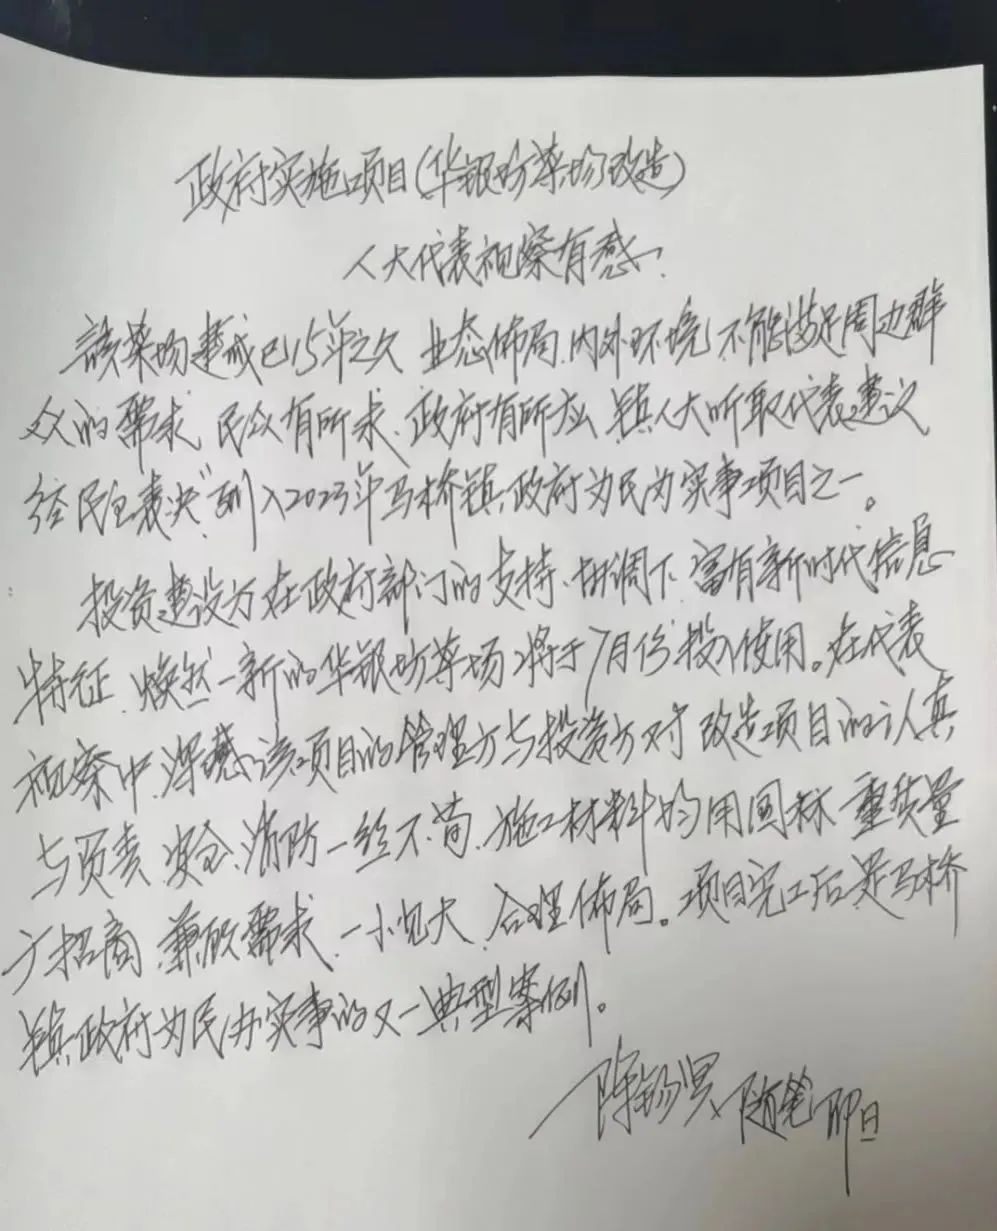 政府实施项目(华银坊菜场改造)
人大代表视察有感
該菜场建成已15年之久 业态佈局、内外环境 不能满足周边群
众的需求、民众有所求、政府有所应 镇人大听取代表建议
经民主表决"列入2023年马桥镇政府为民办实事项目之一。
投资建设方在政府部门的支持、协调下、富有新时代信息
特征、焕然一新的华银坊菜场将于7月份投入使用。在代表
视察中、深感该项目的管理方与投资方对 改造项目的认真
与负责、安全、消防一丝不苟、施工材料均用国标 重质量
广招商、兼顾需求、一小见大、合理佈局。项目完工后是马桥
镇政府为民办实事的又一典型案例。
陈锡 随笔 即日